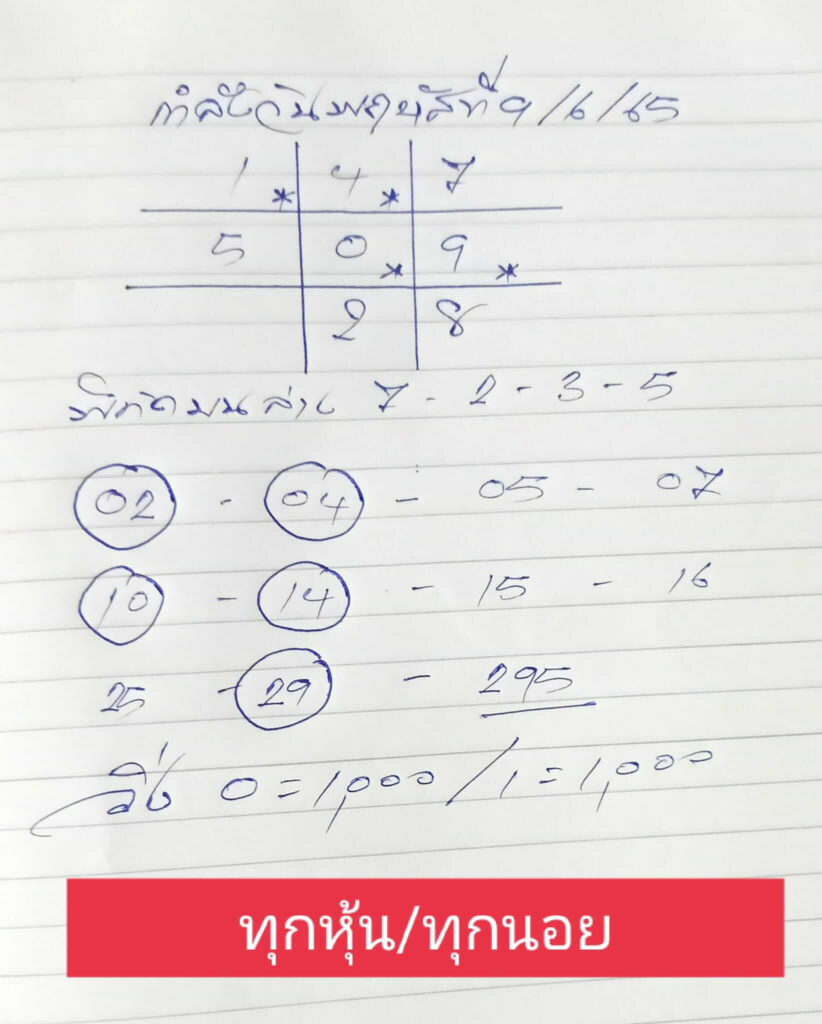 กำลังวันพฤหัสที่ 9/6/65
1 * 4 * 7
5 0 * 9 *
2 8
พิกัดบนล่าง 7 - 2 - 3 - 5
02 - 04 - 05 - 07
10 - 14 - 15 - 16
25 - 29 - 295
วิ่ง 0 = 1,000 / 1 = 1,000
ทุกหุ้น/ทุกนอย